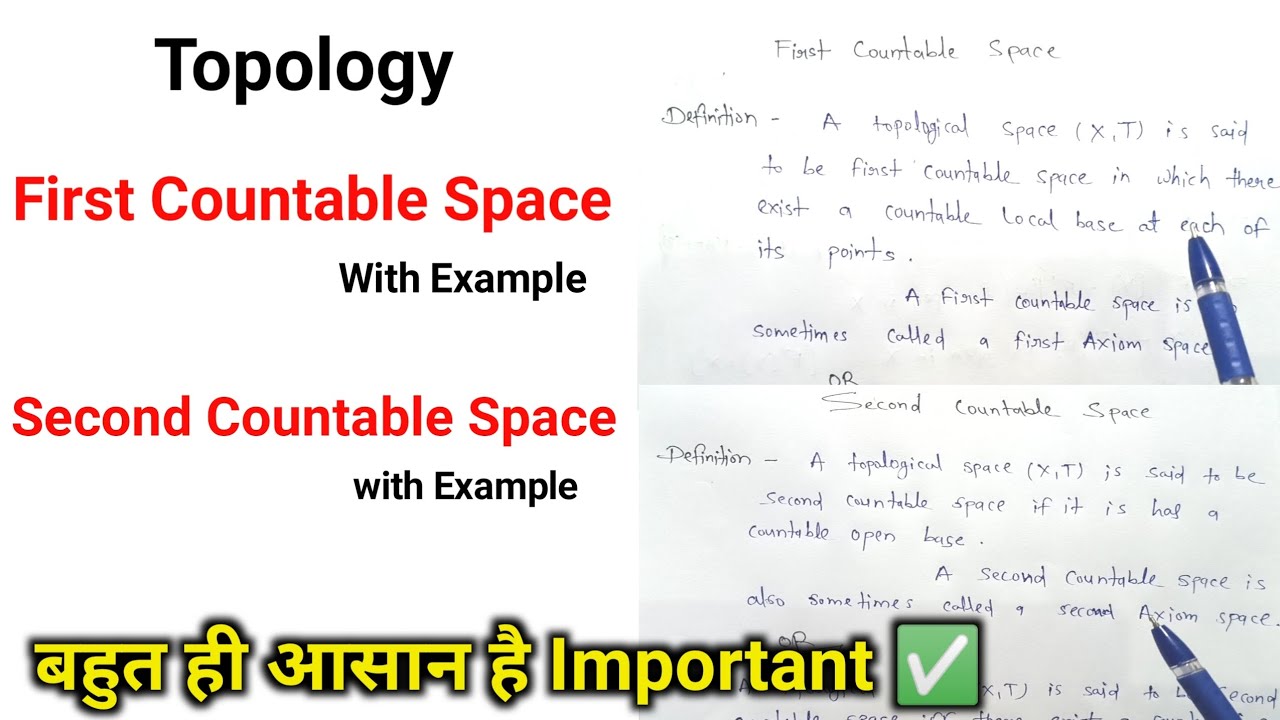 Topology
First Countable Space
With Example
Second Countable Space
with Example
बहुत ही आसान है Important
First Countable Space
Definition - A topological space (X,T) is said
to be first countable space in which there
exist a countable local base at each of
its points.
A first countable space is
sometimes called a first Axiom space
OR
Second Countable Space
Definition - A topological space (X,T) is said to be
second countable space if it is has a
countable open base.
A second countable space is
also sometimes called a second Axiom space.
OR
X,T) is said to Second
space iff there exist a